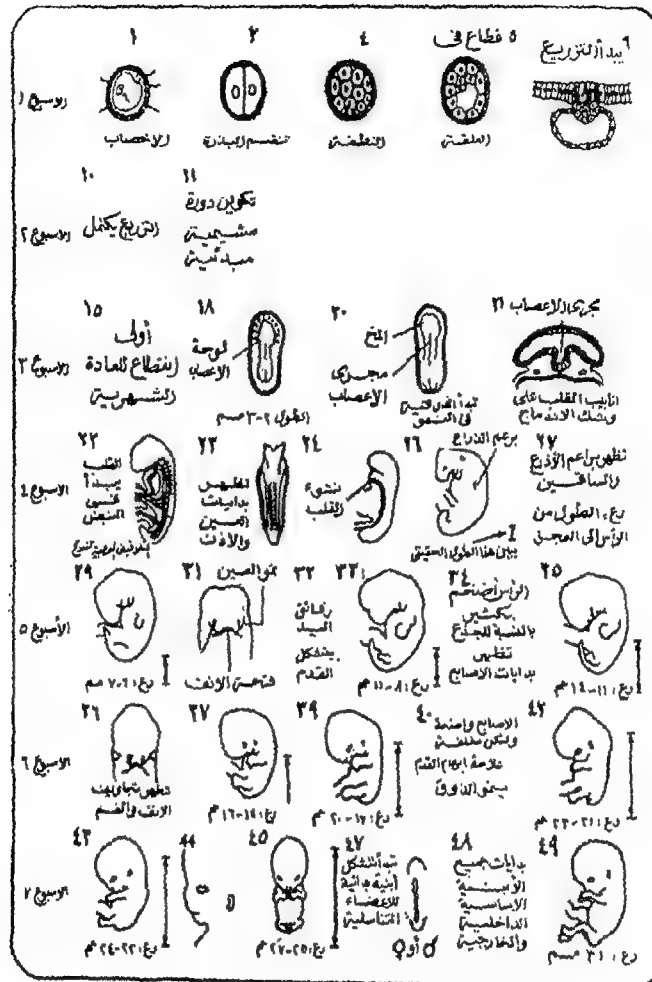 الاسبوع ١
١
الاخصاب
٢
تنقسم البذرة
٤
النطفة
٥ قطاع فى
العلقة
٦
يبدأ التزريع
الاسبوع ٢
١٠
التزريع يكتمل
١١
تكوين دورة
مشيمية
مبدأية
الاسبوع ٣
١٥
أولى
إنقطاع للعادة
الشهرية
١٨
لوحة
الأعصاب
الطول ٢-٣ مم
٢٠
المخ
مجرى
الأعصاب
٢١
مجرى الأعصاب
انابيب القلب على
وشك الاندماج
الاسبوع ٤
٢٢
القلب
يبدأ
فى
النبض
٢٣
تظهر
بدايات
العين
والأذن
٢٤
نتوء
القلب
٢٦
برعم الذراع
يبين هذا الطول الحقيقى
٢٧
تظهر براعم الأذرع
والساقين
رع: الطول من
الرأس الى العجز
الأسبوع ٥
٢٩
رع: ٦-٧ مم
٣١
نمو العين
فتحة الانف
٣٢
اليد
يتشكل
القدم
٣٣
رع: ٨-١١ مم
٣٤
الرأس أضخم
بكثير
بالنسبة للجذع
تظهر
بدايات الاصابع
٣٥
رع: ١١-١٤ مم
الاسبوع ٦
٣٦
تظهر تجاويف
الانف والفم
٣٧
رع: ١٤-١٦ مم
٣٩
رع: ١٧-٢٠ مم
٤٠
الاصابع واضحة
ولكن مغلفة
ينمو الذوق
٤٢
رع: ٢١-٢٣ مم
الاسبوع ٧
٤٣
رع: ٢٢-٢٤ مم
٤٤
٤٥
رع: ٢٥-٢٧ مم
٤٧
تبدأ تتشكل
أبنية بدائية
للاعضاء
التناسلية
♀ أو ♂
٤٨
بدايات جميع
الأبنية
الاساسية
الداخلية
والخارجية
٤٩
رع: ٣١ مم